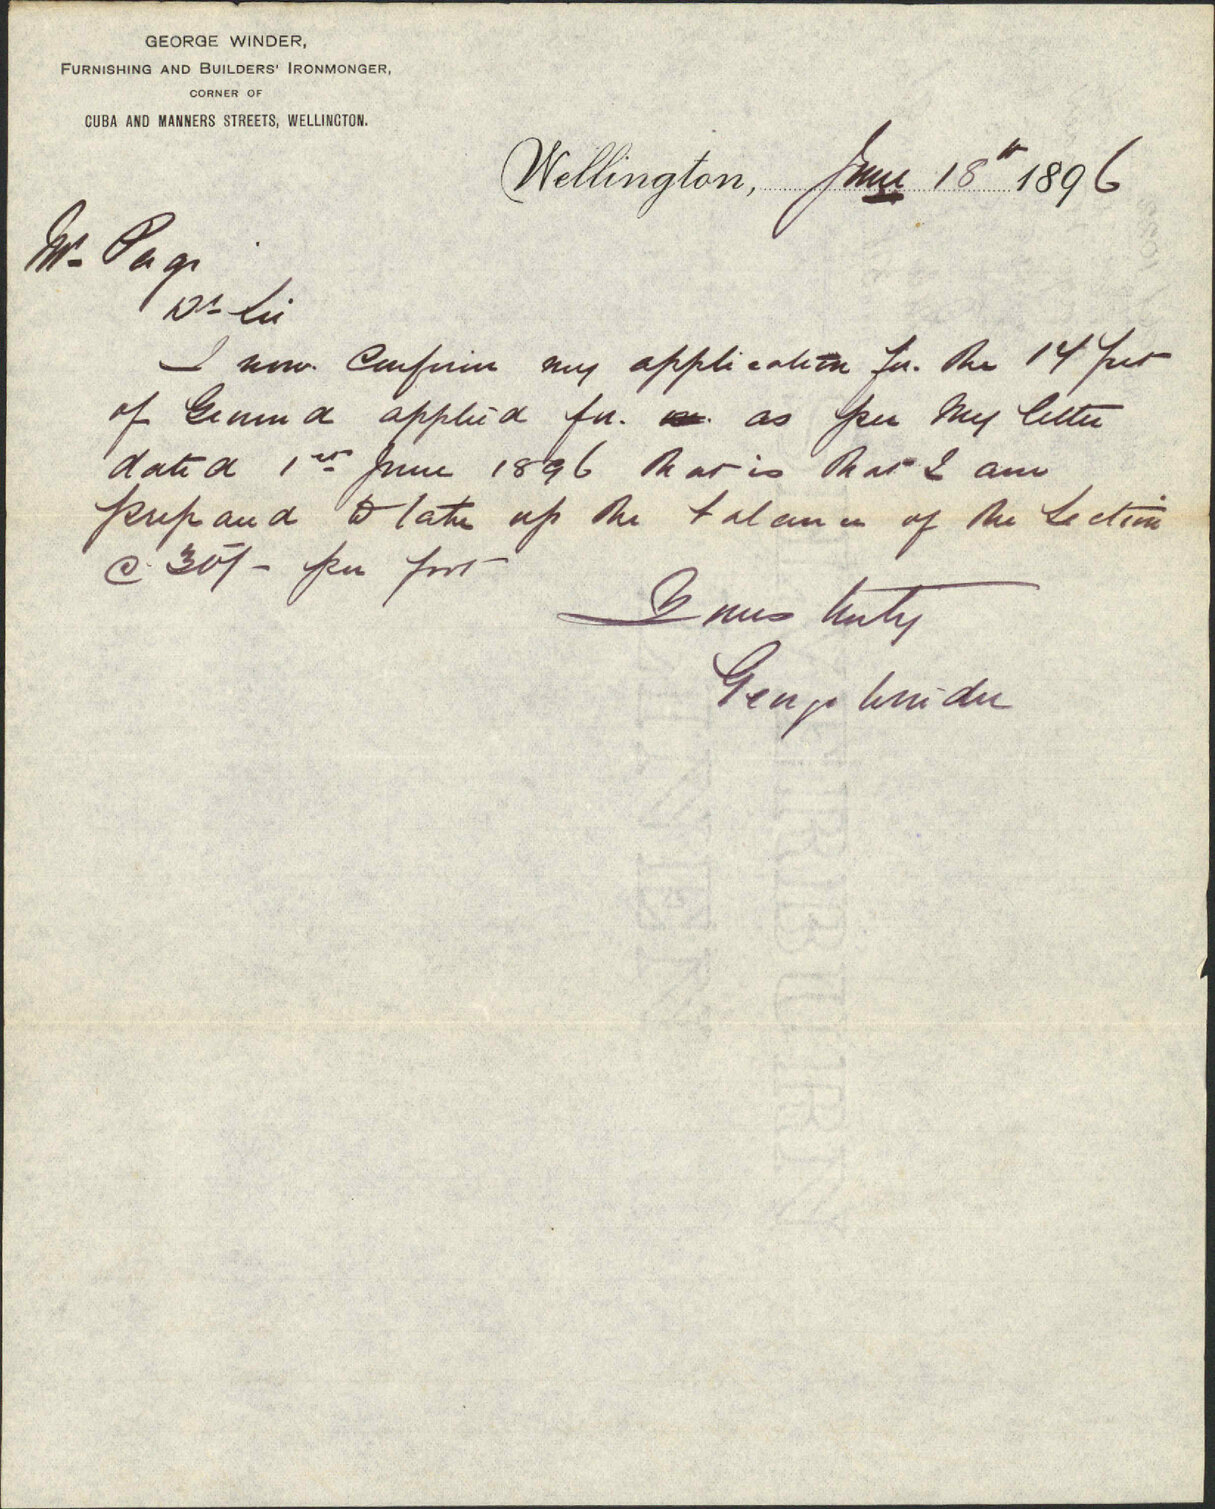 GEORGE WINDER,
FURNISHING AND BUILDERS' IRONMONGER,
CORNER OF
CUBA AND MANNERS STREETS, WELLINGTON.
Wellington, June 18th 1896
Mr Page
Dr Sir
I now Confirm my application for the 14 feet
of Ground applied for. as per My letter
dated 1st June 1896 that is that I am
prepared to take up the balance of the Section
@ 30/- per foot
Yours truly
George Winder